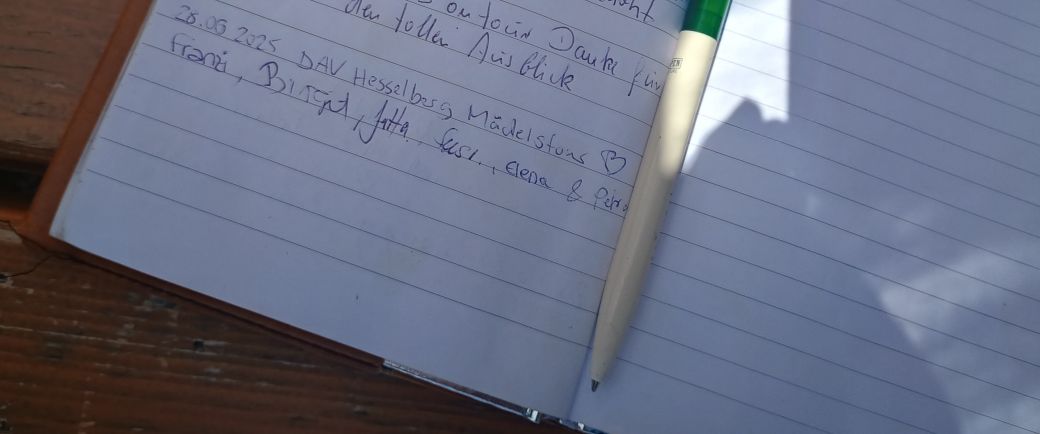 on tour Danke für
den tollen Ausblick
28.06.2025 DAV Hesselberg Mädelstour ♡
Franzi, Birgit, Jutta, Susi, Elena & Petra